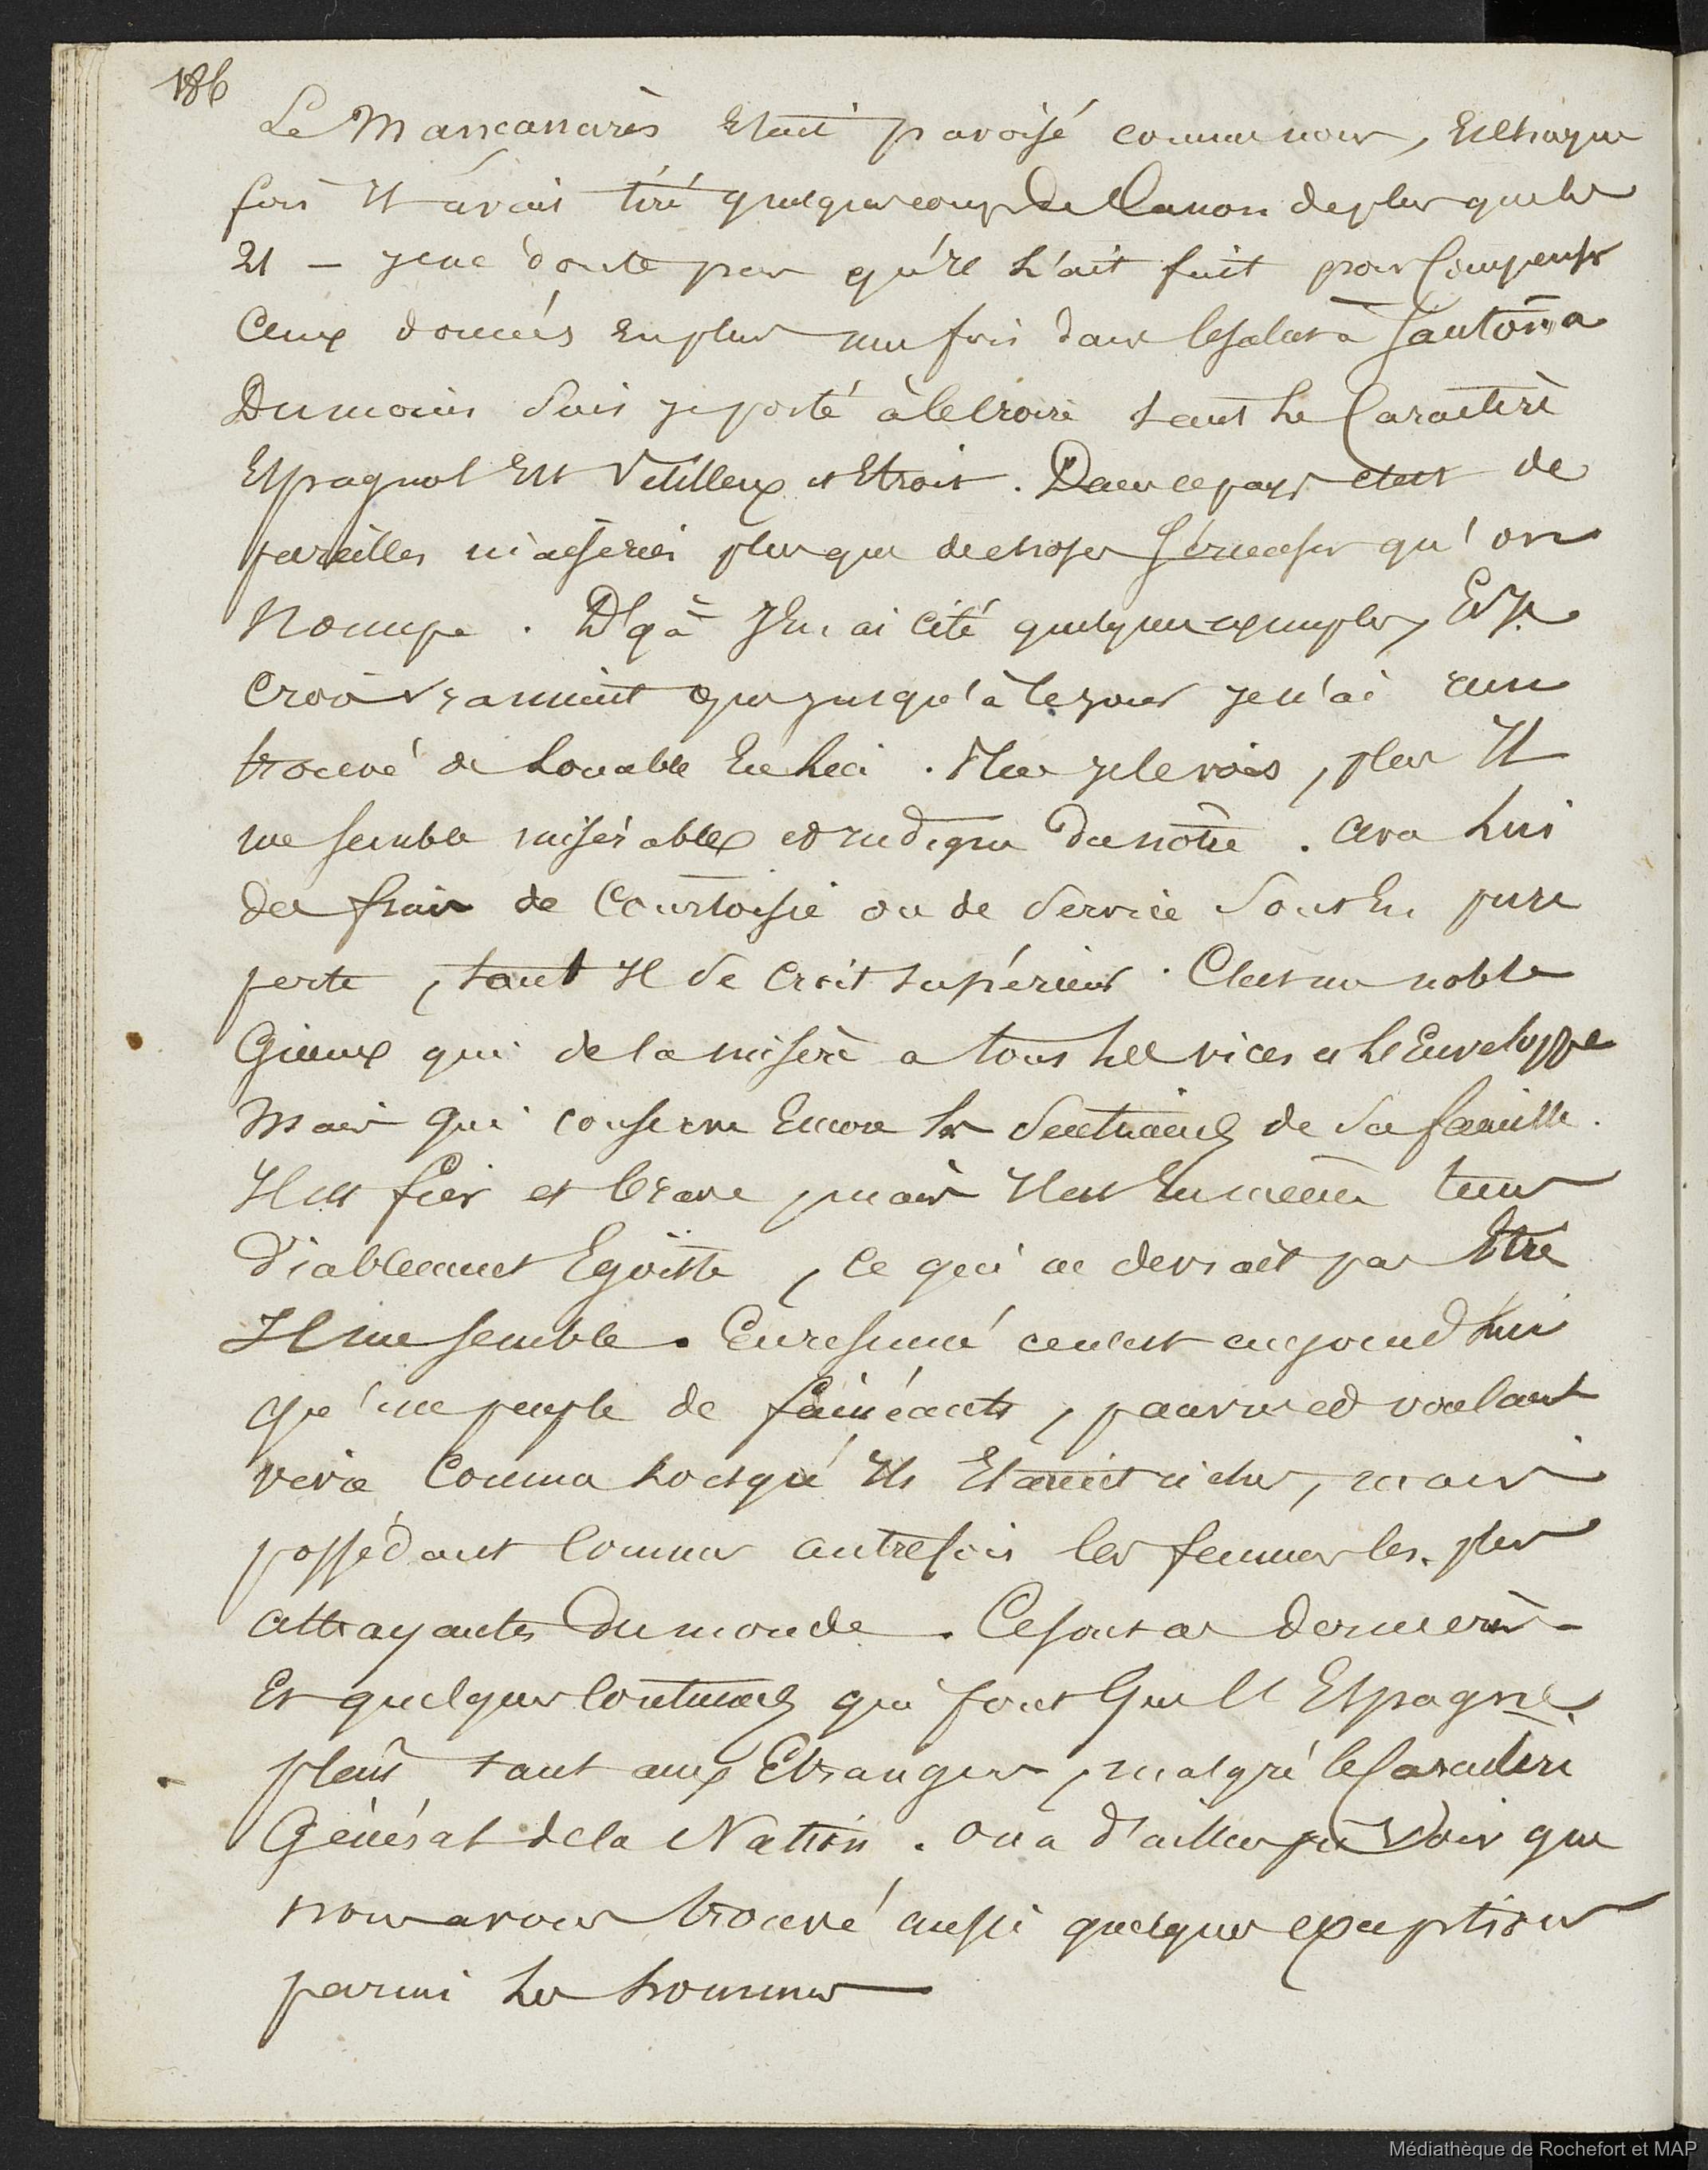 186
Le Mancanarès Etait pavoisé comme nous, Et chaque
fois Il avait tiré quelques coups de Canon de plus que les
21 – je ne doute pas qu'il l'ait fait pour Compenser
Ceux donnés en plus une fois dans le salut à Santoña
Du moins suis je porté à le croire tant le Caractère
Espagnol Est Vetilleux et Etroit. Dans ce pays c'est de
pareilles niaiseries plus que de choses sérieuses qu'on
s'occupe. Déjà J'en ai cité quelques exemples, Et Je
Crois vraiment que jusqu'à ce jour je n'ai rien
trouvé de Louable En lui. Plus je le vois, plus Il
me semble misérable et indigne du notre. Avec lui
des frais de Courtoisie ou de Service sont En pure
perte, tant Il se croit supérieur. C'est un noble
Gueux qui de la misère a tous les vices et l'Enveloppe
Mais qui conserve Encore les sentiments de sa famille.
Il est fier et brave, mais Il est En même tems
Diablement Egoïste, ce qui ne devrait pas Etre
Il me semble. En resumé ce n'est aujourd'hui
qu'un peuple de fainéants, pauvres et voulant
vivre Comme lorsqu'Ils Etaient riches, mais
possédant Comme autrefois les femmes les plus
attrayantes du monde. Ce sont ces dernières –
Et quelques Coutumes qui font que l'Espagne
plait tant aux Etrangers, malgré le Caractère
Général de la Nation. On a d'ailleurs pu Voir que
nous avons trouvé aussi quelques exceptions
parmi les hommes
Médiathèque de Rochefort et MAP